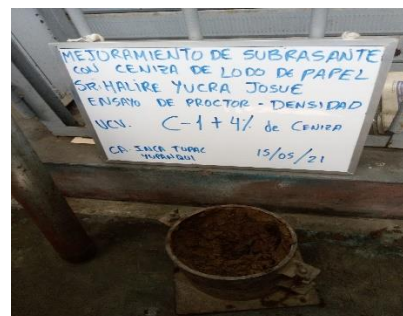 MEJORAMIENTO DE SUBRASANTE
CON CENIZA DE LODO DE PAPEL
SR. HALIRE YUCRA JOSUE
ENSAYO DE PROCTOR - DENSIDAD
UCV. C-1 + 4% de CENIZA
CA. INCA TUPAC
YUPANQUI 15/05/21